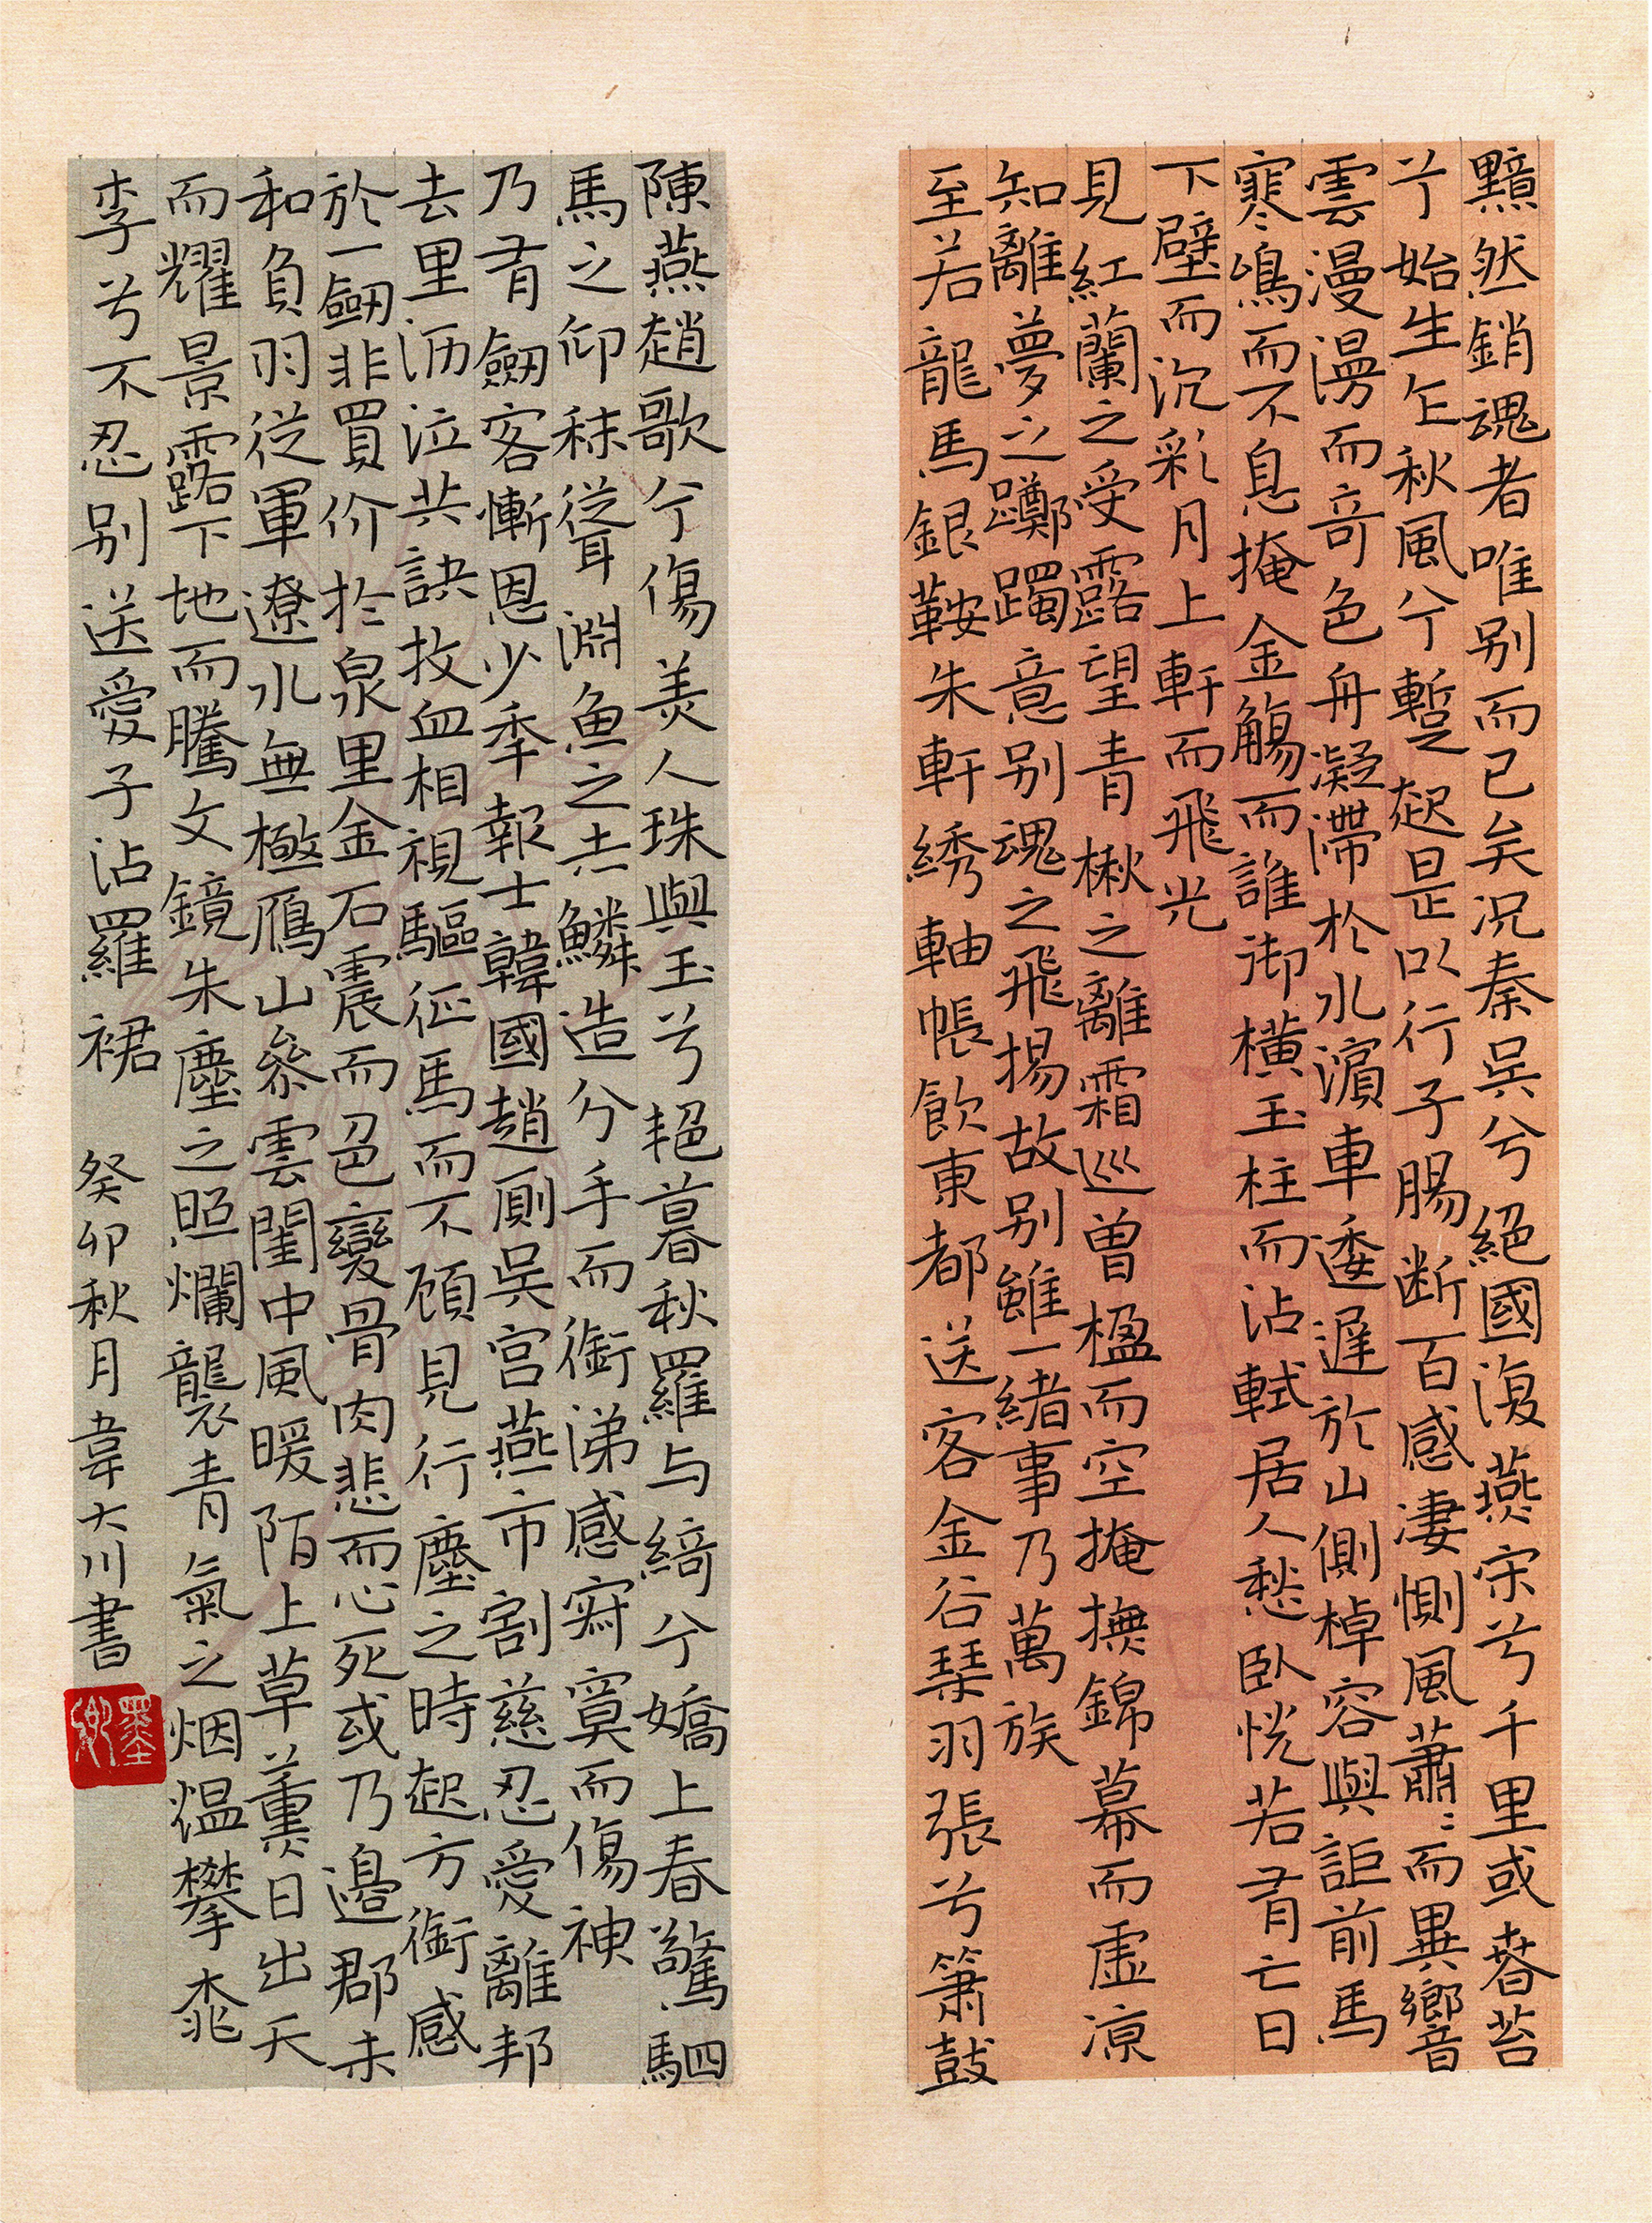 黯然銷魂者唯别而已矣况秦吳兮絕國復燕宋兮千里或春苔
兮始生乍秋風兮蹔起是以行子腸断百感凄惻風蕭〻而異響
雲漫漫而奇色舟凝滯於水濱車逶遲於山側棹容與詎前馬
寒鳴而不息掩金觴而誰御橫玉柱而沾軾居人愁卧恍若有亡日
下壁而沉彩月上軒而飛光
見紅蘭之受露望青楸之離霜巡曾楹而空掩撫錦幕而虛涼
知離夢之躑躅意别魂之飛揚故别雖一緒事乃萬族
至若龍馬銀鞍朱軒綉軸帳飲東都送客金谷琴羽張兮簫鼓
陳燕趙歌兮傷美人珠與玉兮艷暮秋羅与綺兮嬌上春驚駟
馬之仰秣聳淵魚之赤鱗造分手而銜涕感寂寞而傷神
乃有劒客慚恩少年報士韓國趙厠吳宮燕市割慈忍愛離邦
去里沥泣共訣抆血相視驅征馬而不顧見行塵之時起方銜感
於一劒非買价於泉里金石震而色變骨肉悲而心死或乃邊郡未
和負羽從軍遼水無極鴈山參雲閨中風暖陌上草薰日出天
而耀景露下地而騰文鏡朱塵之照爛襲青氣之烟煴攀桃
李兮不忍别送愛子沾羅裙 癸卯秋月韋大川書
墨卿